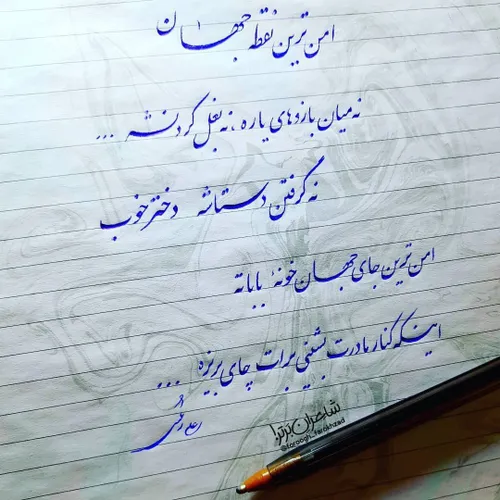 امن ترین نقطه جهان
نه میان بازوهای یاره ، نه بغل کردنشه ...
نه گرفتن دستاشه دختر خوب
امن ترین جای جهان خونه باباته
اینکه کنار مادرت بشینی برات چای بریزه ...
شاعران برتر
@foroogh_farokhzad